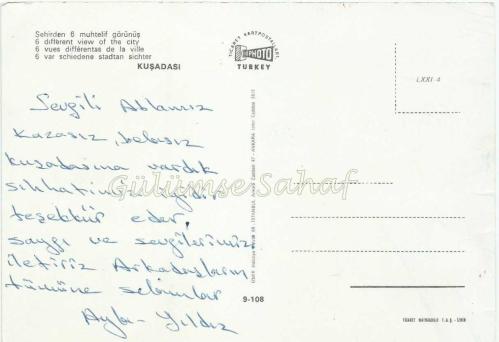 Şehirden 6 muhtelif görünüş
6 different view of the city
6 vues différentas de la ville
6 var schiedene stadtan sichter
KUŞADASI
TİCARET KARTPOSTALLARI
PHOTO
TURKEY
LXXI-4
Sevgili Ablamız
Kazasız, belasız
kuşadasına vardık
sıhhatimiz iyidir
teşekkür eder,
saygı ve sevgilerimizi
iletiriz Arkadaşların
tümüne selamlar
Ayla - Yıldız
Gülümse Sahaf
9-108
TİCARET MATBAACILIK T.A.Ş. - İZMİR